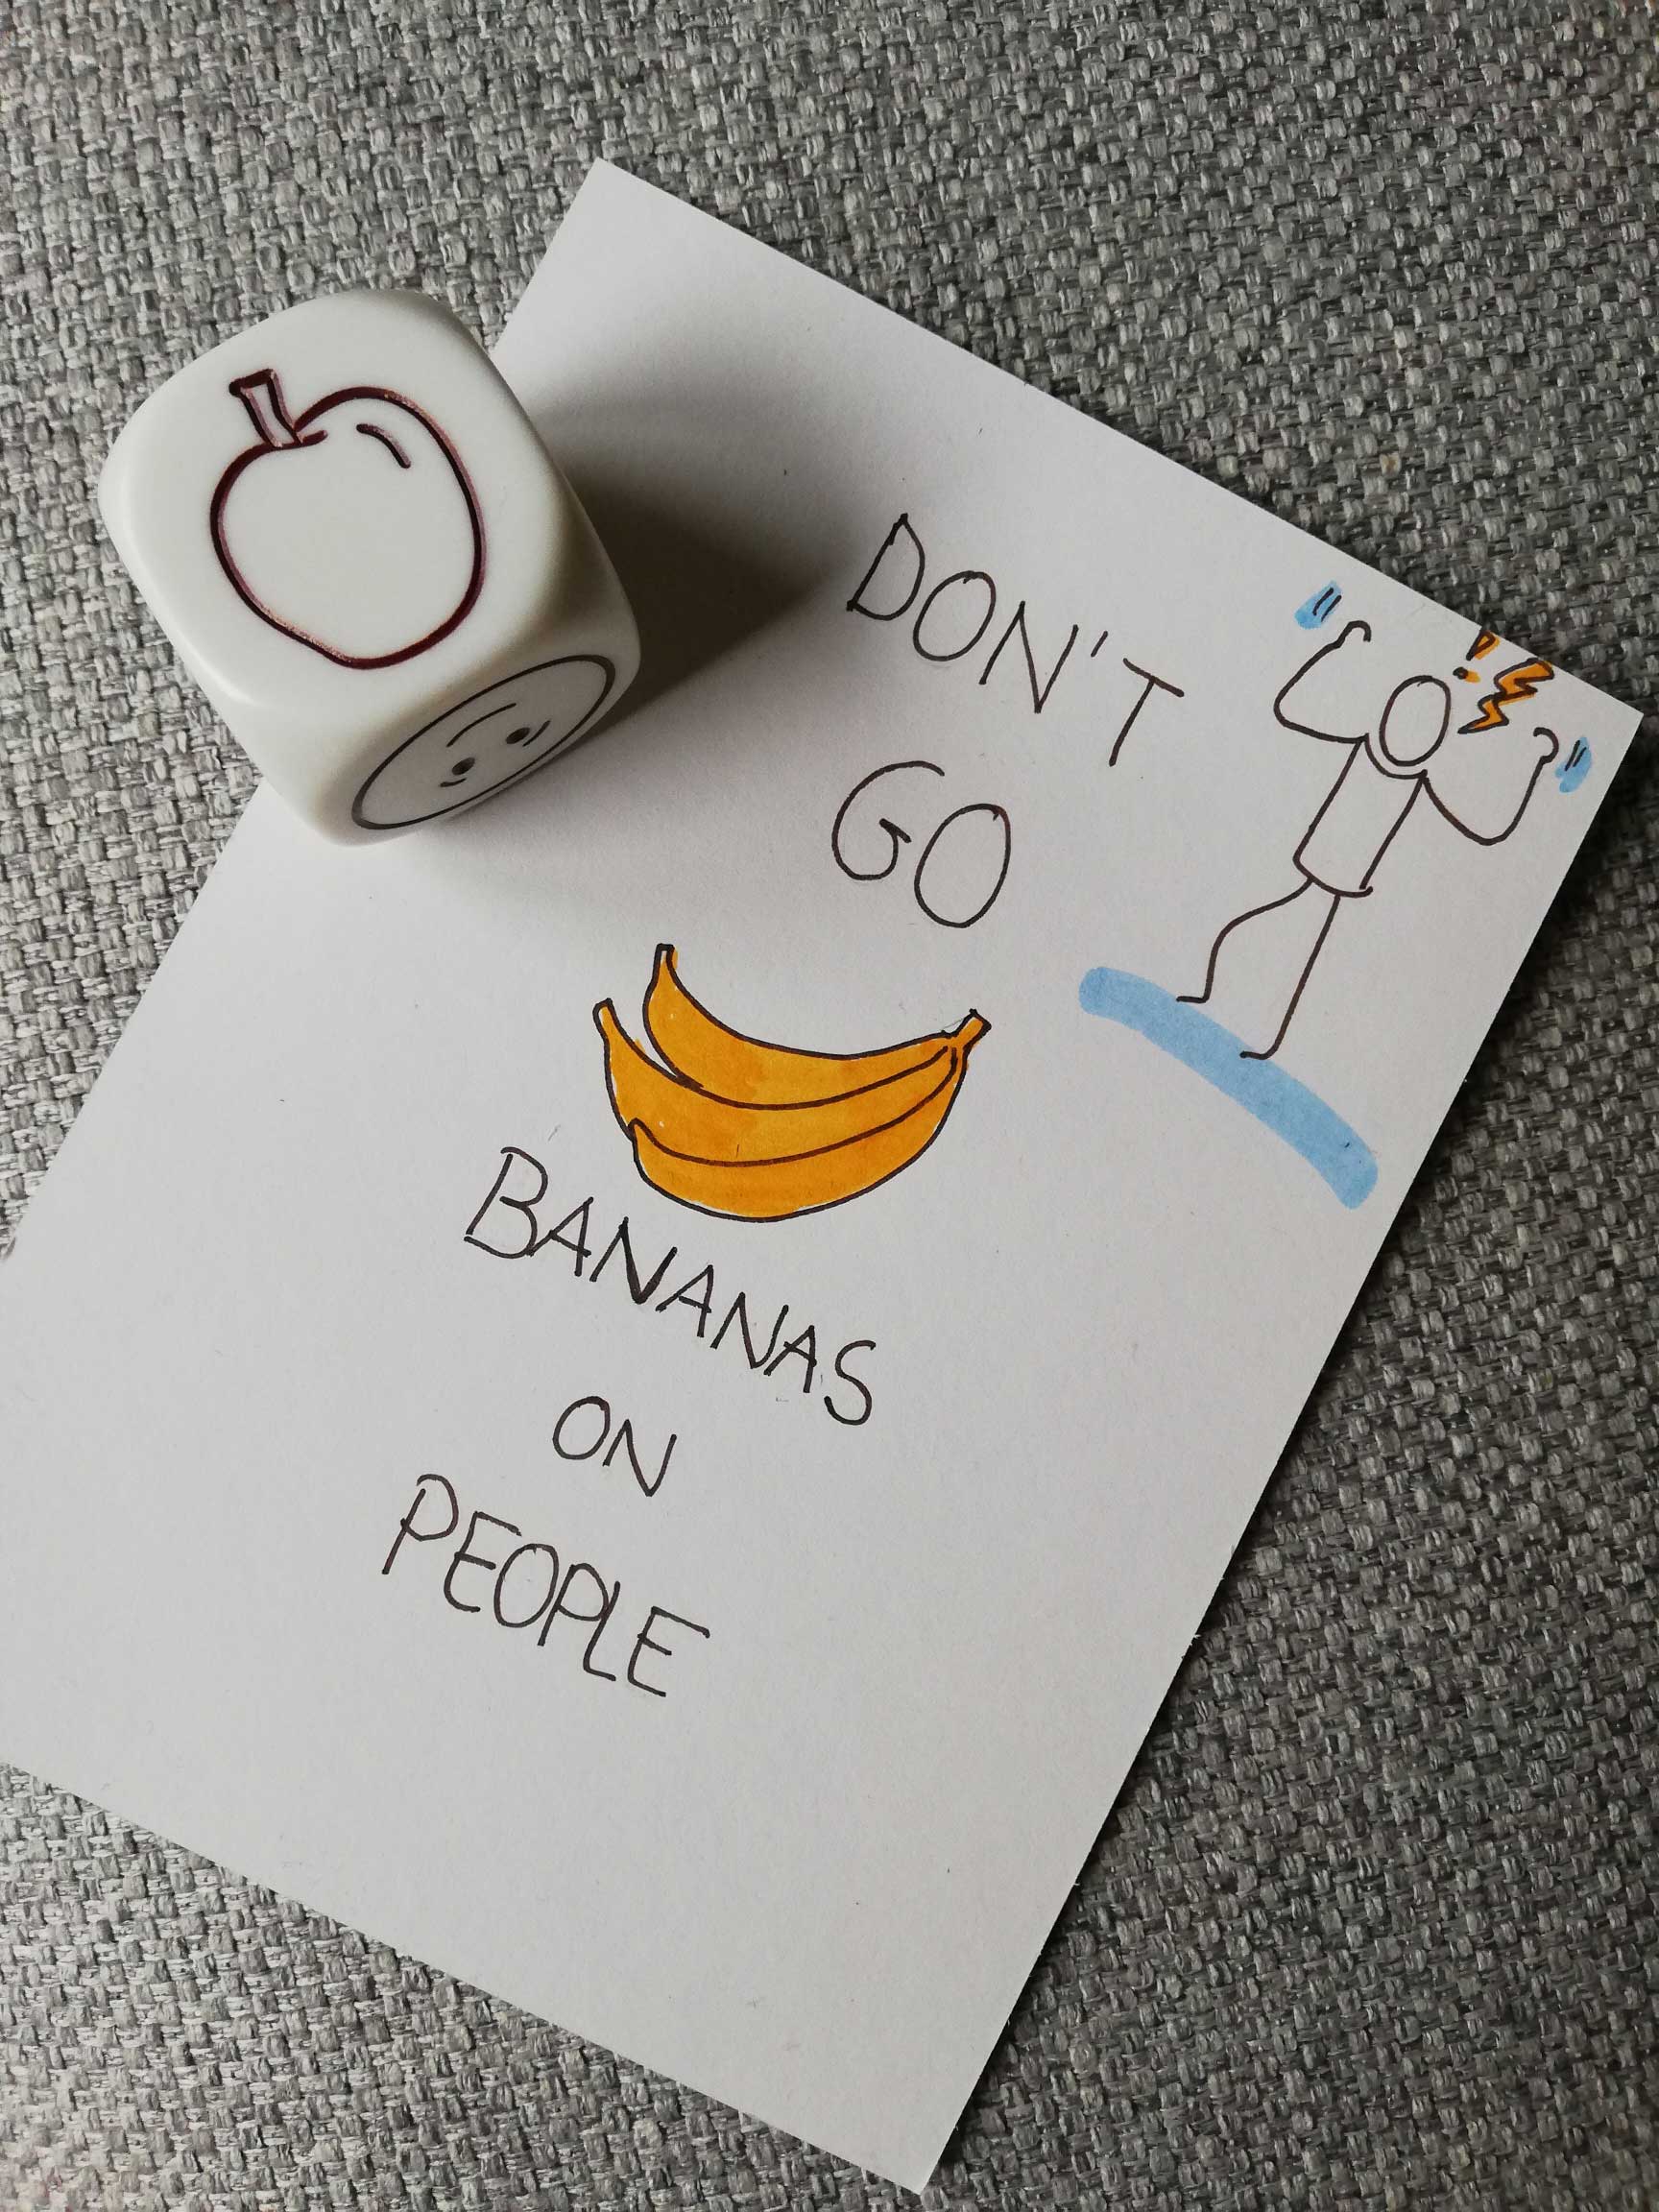 DON'T
GO
BANANAS
ON
PEOPLE